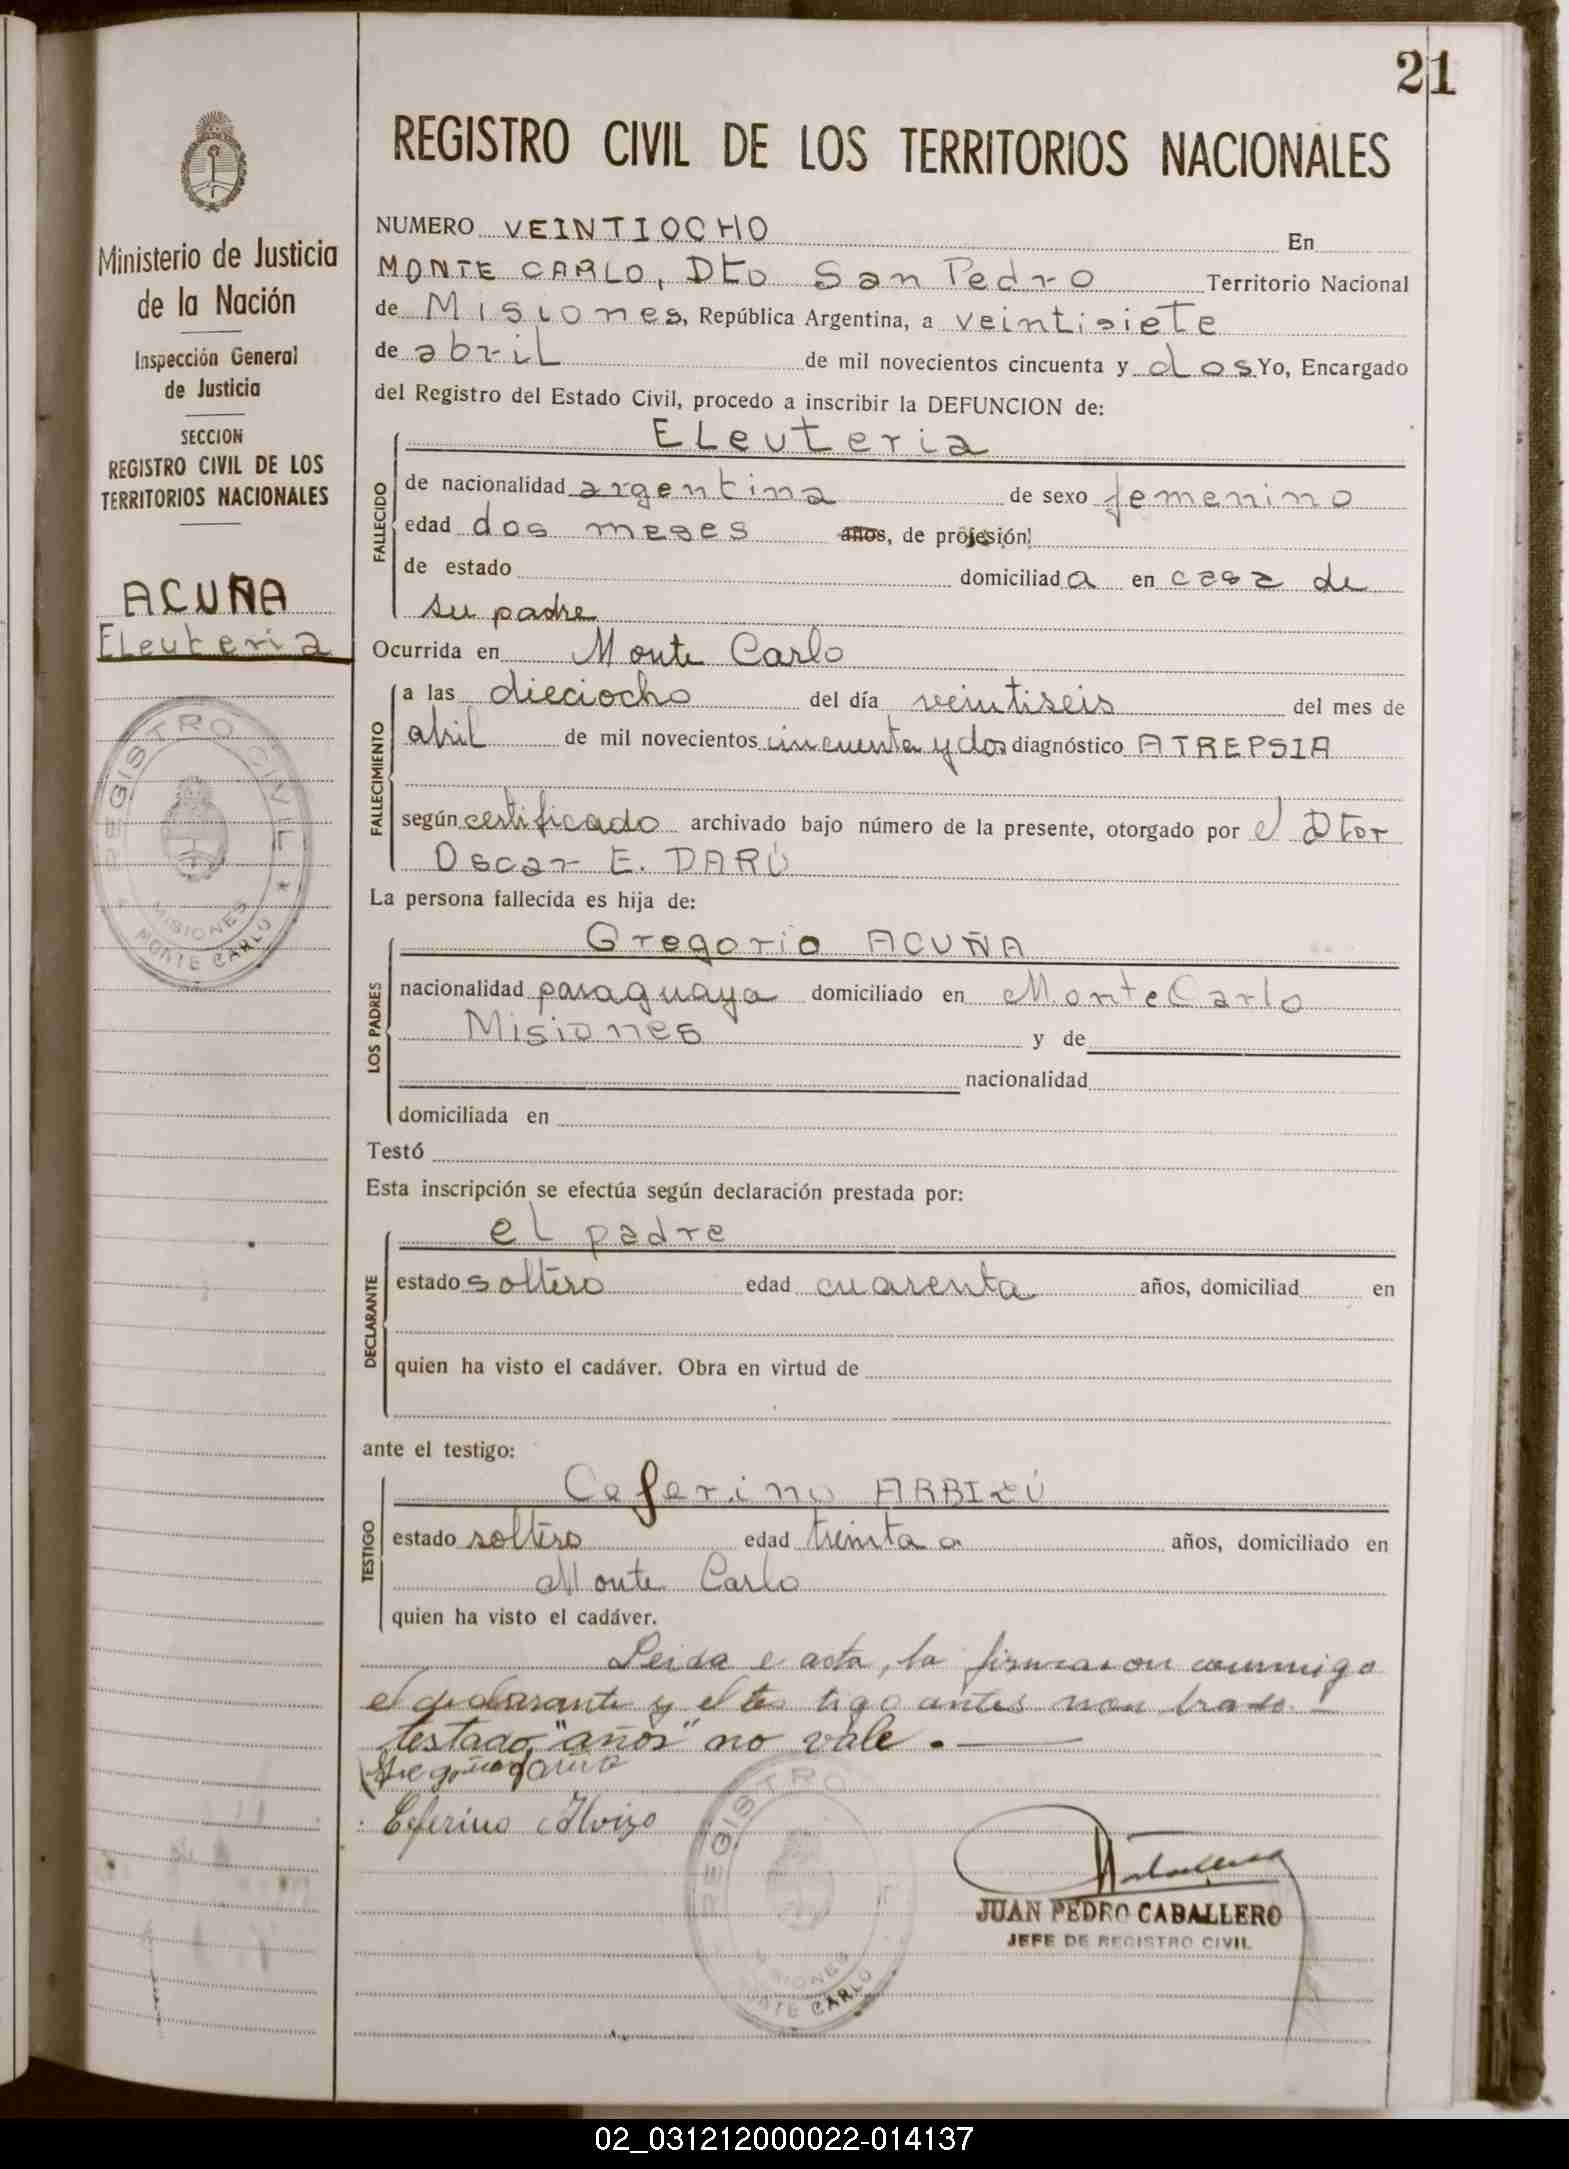 21
REGISTRO CIVIL DE LOS TERRITORIOS NACIONALES
Ministerio de Justicia
de la Nación
Inspección General
de Justicia
SECCION
REGISTRO CIVIL DE LOS
TERRITORIOS NACIONALES
ACUÑA
Eleuteria
REGISTRO CIVIL
MISIONES
MONTE CARLO
NUMERO VEINTIOCHO En
MONTE CARLO, Dto San Pedro Territorio Nacional
de Misiones, República Argentina, a veintisiete
de abril de mil novecientos cincuenta y dos Yo, Encargado
del Registro del Estado Civil, procedo a inscribir la DEFUNCION de:
Eleuteria
FALLECIDO
de nacionalidad argentina de sexo femenino
edad dos meses años, de profesión
de estado domiciliad a en casa de
su padre
Ocurrida en Monte Carlo
FALLECIMIENTO
a las dieciocho del día veintiseis del mes de
abril de mil novecientos cincuenta y dos diagnóstico ATREPSIA
según certificado archivado bajo número de la presente, otorgado por el Dtor
Oscar E. DARÚ
La persona fallecida es hija de:
LOS PADRES
Gregorio ACUÑA
nacionalidad paraguaya domiciliado en Monte Carlo
Misiones y de
nacionalidad
domiciliada en
Testó
Esta inscripción se efectúa según declaración prestada por:
DECLARANTE
el padre
estado soltero edad cuarenta años, domiciliad en
quien ha visto el cadáver. Obra en virtud de
ante el testigo:
TESTIGO
Ceferino ARBIZÚ
estado soltero edad treinta a años, domiciliado en
Monte Carlo
quien ha visto el cadáver.
Leida e acta, la firmaron conmigo
el declarante y el testigo antes nombrado
testado "años" no vale.
Ceferino
REGISTRO
MISIONES
MONTE CARLO
JUAN PEDRO CABALLERO
JEFE DE REGISTRO CIVIL
02_031212000022-014137